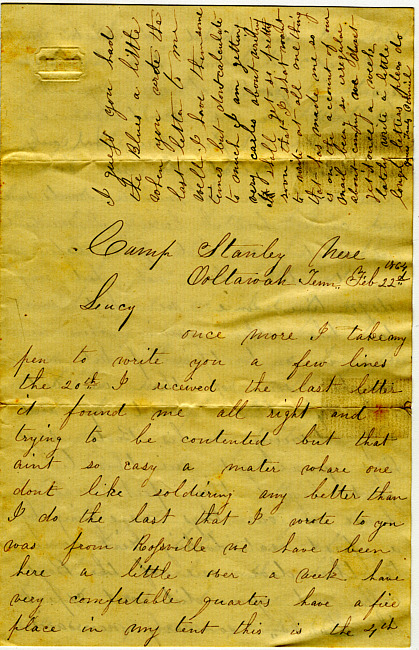 Camp Stanley Nere
Ooltawah Tenn. Feb 22nd 1864
Lucy
once more I take my
pen to write you a few lines
the 20th I recieved the last letter
it found me all right and
trying to be contented but that
aint so easy a mater whare one
dont like soldiering any better than
I do the last that I wrote to you
was from Rossville we have been
here a little over a week have
very comfortable quarters have a fire
place in my tent this is the 4th
I guess you had
the Blues a little
when you wrote the
last letter to me
well I have them some
times but dont calculate
to much I am getting
very careles about writing
I shall get so pretty
soon that I shant want
to write at all one thing
that has made me so
is on the account of our
mail being so irregular
about coming we dont
get it once a week
lately write a little
longer letters please do